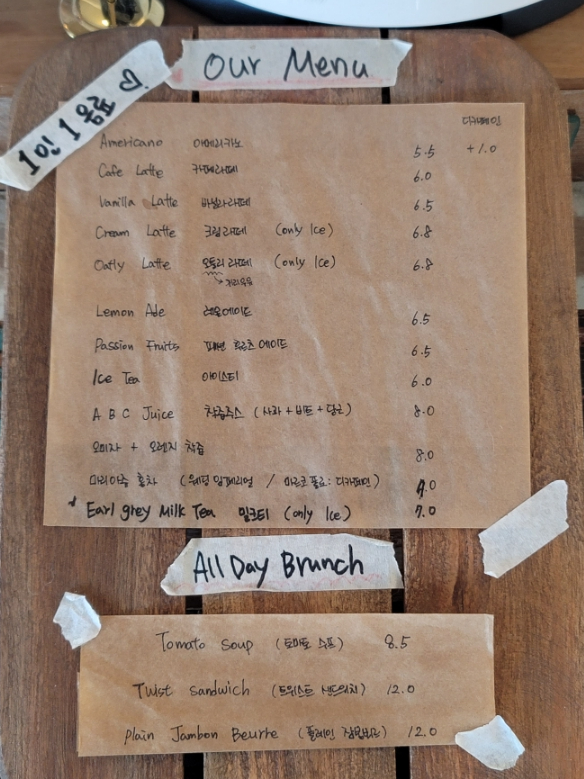 Our Menu
1인 1음료 ♡
디카페인
Americano 아메리카노 5.5 +1.0
Cafe Latte 카페라떼 6.0
Vanilla Latte 바닐라라떼 6.5
Cream Latte 크림라떼 (only Ice) 6.8
Oatly Latte 오틀리 라떼 (only Ice) 6.8
귀리우유
Lemon Ade 레몬에이드 6.5
Passion Fruits 패션 후르츠 에이드 6.5
Ice Tea 아이스티 6.0
A B C Juice 착즙주스 (사과 + 비트 + 당근) 8.0
오미자 + 오렌지 착즙 8.0
마리아쥬 홍차 (웨딩 임페리얼 / 마르코 폴로 : 디카페인) 7.0
* Earl grey Milk Tea 밀크티 (only Ice) 7.0
All Day Brunch
Tomato Soup (토마토 수프) 8.5
Twist Sandwich (트위스트 샌드위치) 12.0
Plain Jambon Beurre (플레인 잠봉뵈르) 12.0